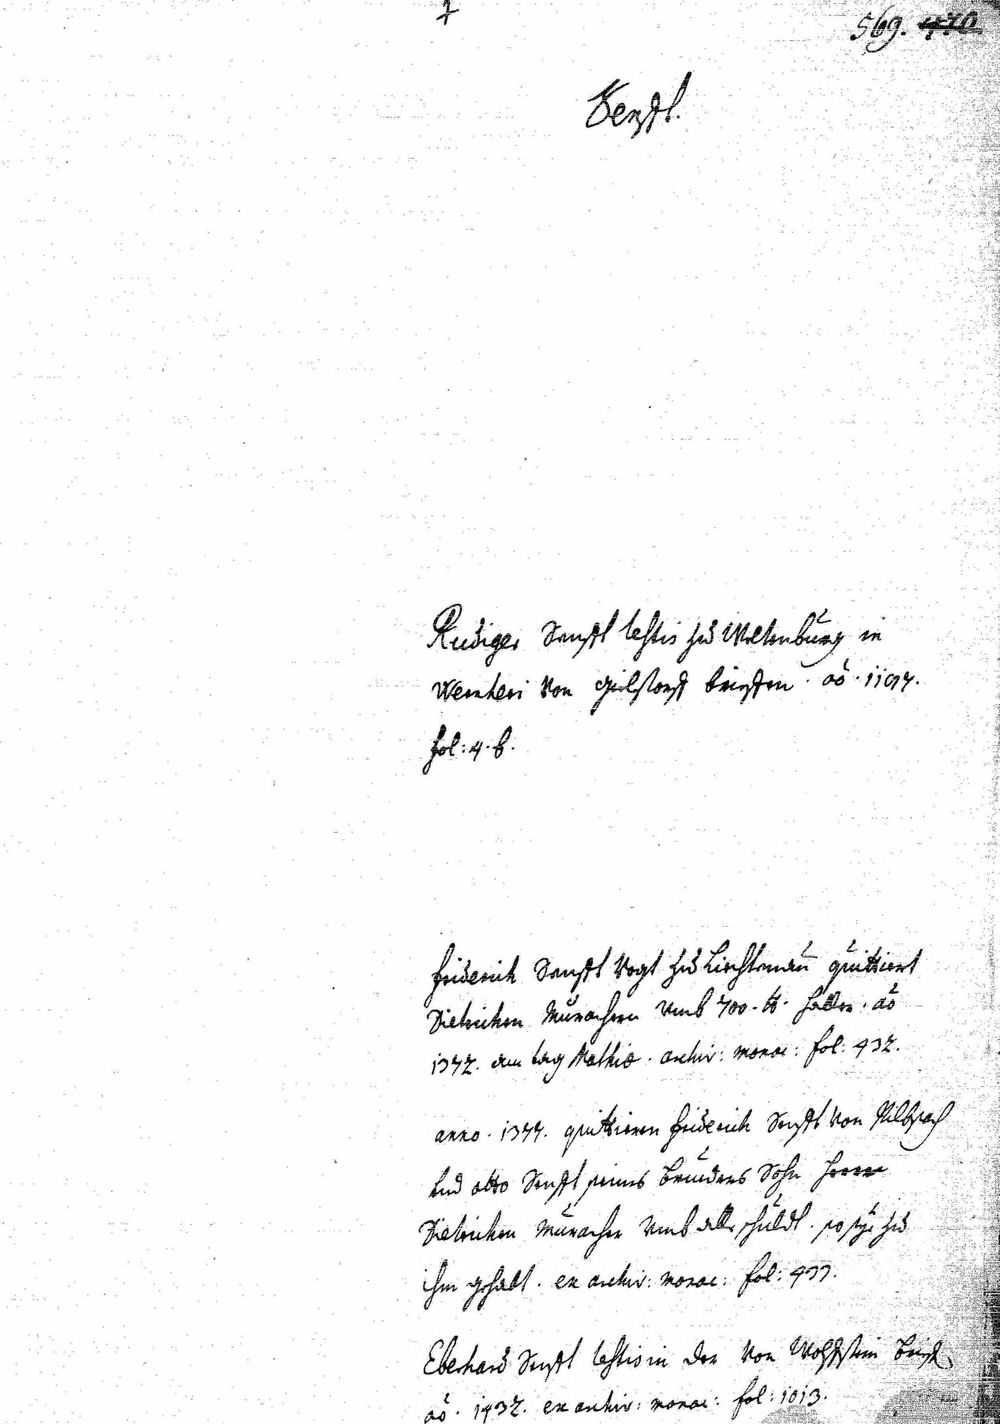 569. 470
Senfft.
Rudiger Senfft testis zu Weltenburg in
Wernheri von brieffen. ao.
fol: 4. b.
Friderich Senfft Vogt zu Liechtenau quittiert
Dietrichen Muracher umb 700. lb. haller. ao
1372. am tag Mathie. archiv: monac: fol: 432.
anno. 1377. quittieren Friderich Senfft von
und otto Senfft seines Bruders Sohn herrn
Dietrichen Muracher umb alle schuldt. so sye zu
ihm gehabt. ex archiv: monac: fol: 433.
Eberhard Senfft testis in der von Wolfstein brief,
ao. 1432. ex archiv: monac: fol: 1013.